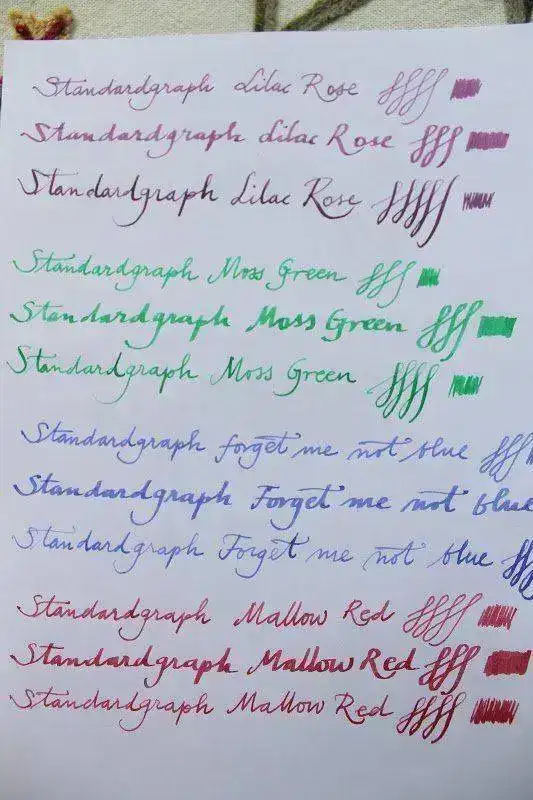 Standardgraph Lilac Rose
Standardgraph Lilac Rose
Standardgraph Lilac Rose
Standardgraph Moss Green
Standardgraph Moss Green
Standardgraph Moss Green
Standardgraph forget me not blue
Standardgraph Forget me not blue
Standardgraph Forget me not blue
Standardgraph Mallow Red
Standardgraph Mallow Red
Standardgraph Mallow Red